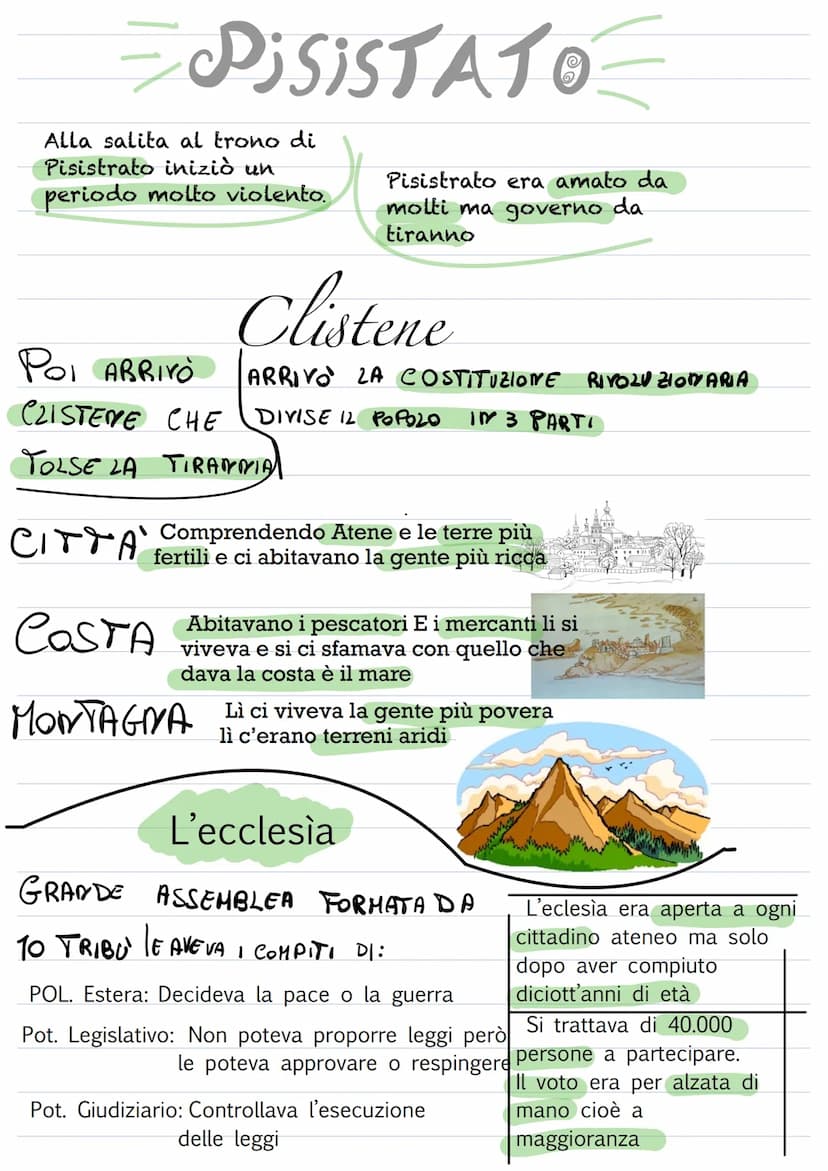 PiSiSTATO
Alla salita al trono di
Pisistrato iniziò un
periodo molto violento.
Pisistrato era amato da
molti ma governo da
tiranno
Clistene
POI ARRIVÒ
CLISTENE CHE
TOLSE LA TIRANNIA
ARRIVÒ LA COSTITUZIONE RIVOLUZIONARIA
DIVISE IL POPOLO IN 3 PARTI
CITTA'
Comprendendo Atene e le terre più
fertili e ci abitavano la gente più ricca
COSTA
Abitavano i pescatori E i mercanti li si
viveva e si ci sfamava con quello che
dava la costa è il mare
MONTAGNA
Lì ci viveva la gente più povera
lì c'erano terreni aridi
L'ecclesìa
GRANDE ASSEMBLEA FORMATA DA
10 TRIBÙ LE AVEVA I COMPITI DI:
POL. Estera: Decideva la pace o la guerra
Pot. Legislativo: Non poteva proporre leggi però
le poteva approvare o respingere
Pot. Giudiziario: Controllava l'esecuzione
delle leggi
L'eclesìa era aperta a ogni
cittadino ateneo ma solo
dopo aver compiuto
diciott'anni di età
Si trattava di 40.000
persone a partecipare.
Il voto era per alzata di
mano cioè a
maggioranza